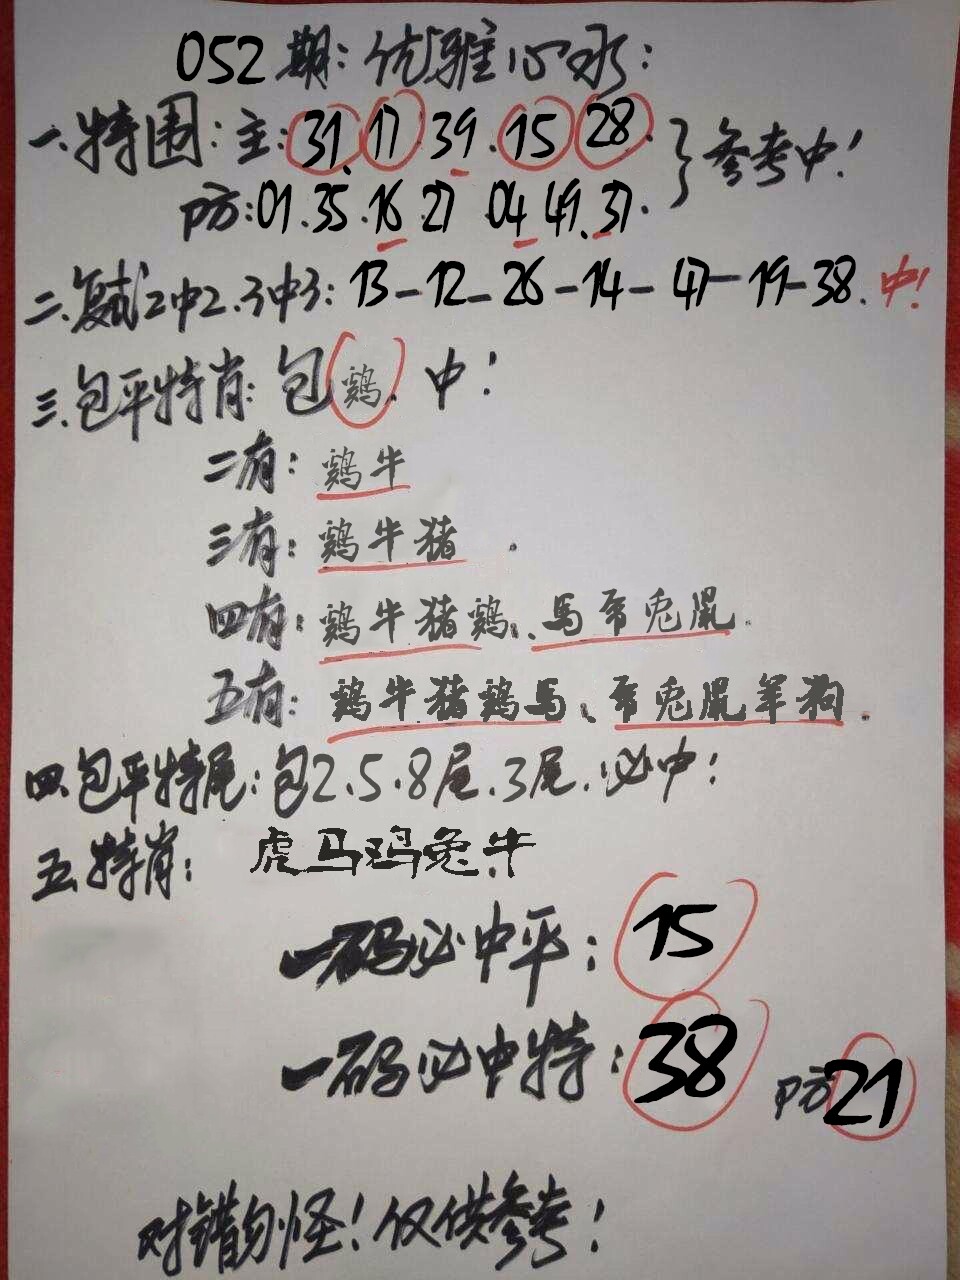 052期：优雅心水：
一.特围：主：31.17.39.15.28. 参考中！
防：01.35.16.27 04 49.37.
二.复试2中2.3中3：13-12-26-14-47-19-38.中！
三.包平特肖：包鸡.中！
二有：鸡牛
三有：鸡牛猪.
四有：鸡牛猪鸡.、马虎兔鼠.
五有：鸡牛猪鸡马、虎兔鼠羊狗.
四.包平特尾：包2.5.8尾.3尾.必中！
五.特肖：虎马鸡兔牛
一码必中平：15
一码必中特：38 防21
对错勿怪！仅供参考！